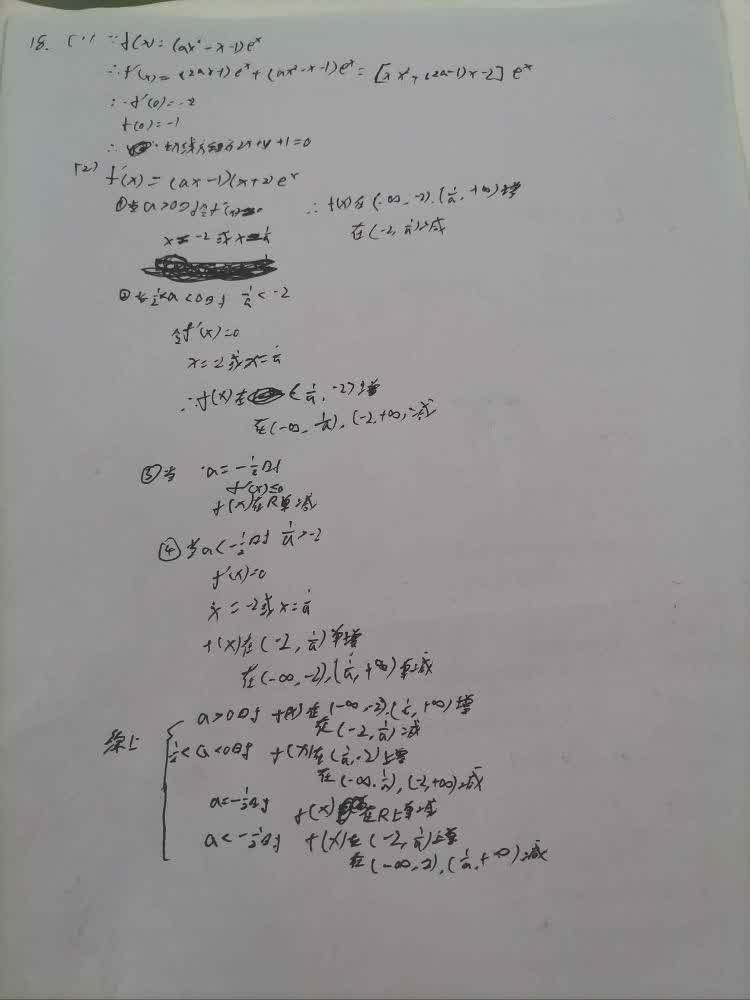 18. (1) ∵f(x)=(ax²-x-1)eˣ
∴f'(x)=(2ax-1)eˣ+(ax²-x-1)eˣ=[ax²+(2a-1)x-2]eˣ
∴f'(0)=-2
f(0)=-1
∴切线方程为2x+y+1=0
(2) f'(x)=(ax-1)(x+2)eˣ
①当a>0时令f'(x)=0
∴f(x)在(-∞,-2),(1/a,+∞)增
x=-2或x=1/a
在(-2,1/a)减
②当-1/2<a<0时 1/a<-2
令f'(x)=0
x=-2或x=1/a
∴f(x)在(1/a,-2)增
在(-∞,1/a),(-2,+∞)减
③当a=-1/2时
f'(x)≤0
f(x)在R单减
④当a<-1/2时 1/a>-2
f'(x)=0
x=-2或x=1/a
f(x)在(-2,1/a)单增
在(-∞,-2),(1/a,+∞)单减
综上
a>0时 f(x)在(-∞,-2),(1/a,+∞)增
在(-2,1/a)减
-1/2<a<0时 f(x)在(1/a,-2)上增
在(-∞,1/a),(-2,+∞)减
a=-1/2时 f(x)在R上单减
a<-1/2时 f(x)在(-2,1/a)上单
在(-∞,-2),(1/a,+∞)减